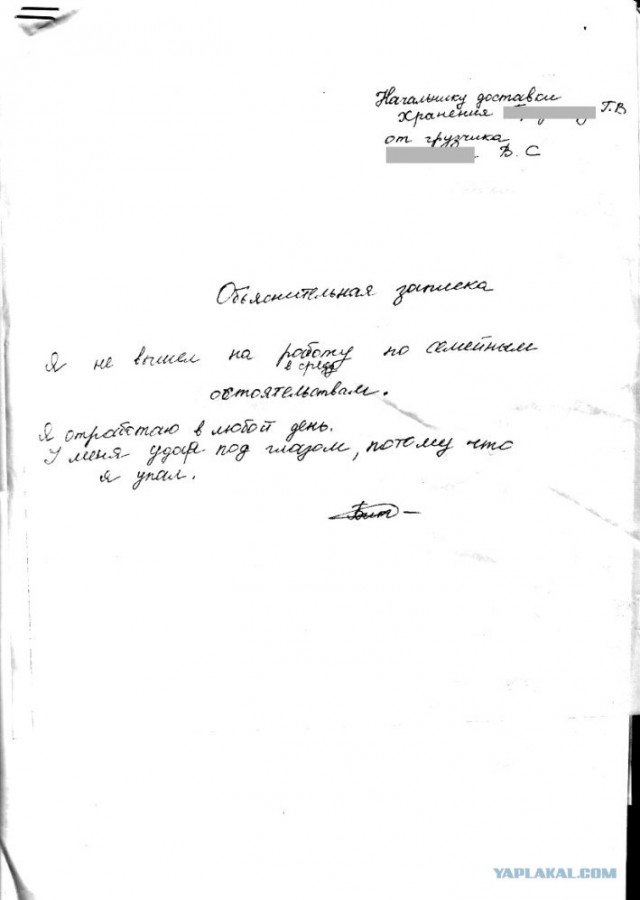 Начальнику доставки
Хранения Г.В
от грузчика
В. С
Обьяснительная записка
Я не вышел на роботу по семейным
в среду
обстоятельствам.
Я отработаю в любой день.
У меня удар под глазом, потому что
я упал.
YAPLAKAL.COM